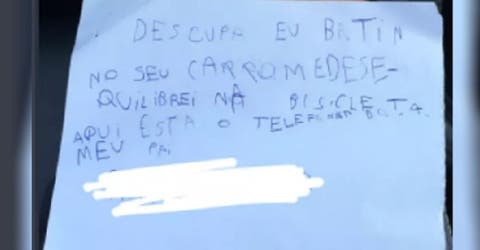 DESCUPA EU BATIN
NO SEU CARRO ME DESE-
QUILIBREI NA BISICLETA
AQUI ESTA O TELEFONE DO
MEU PAI